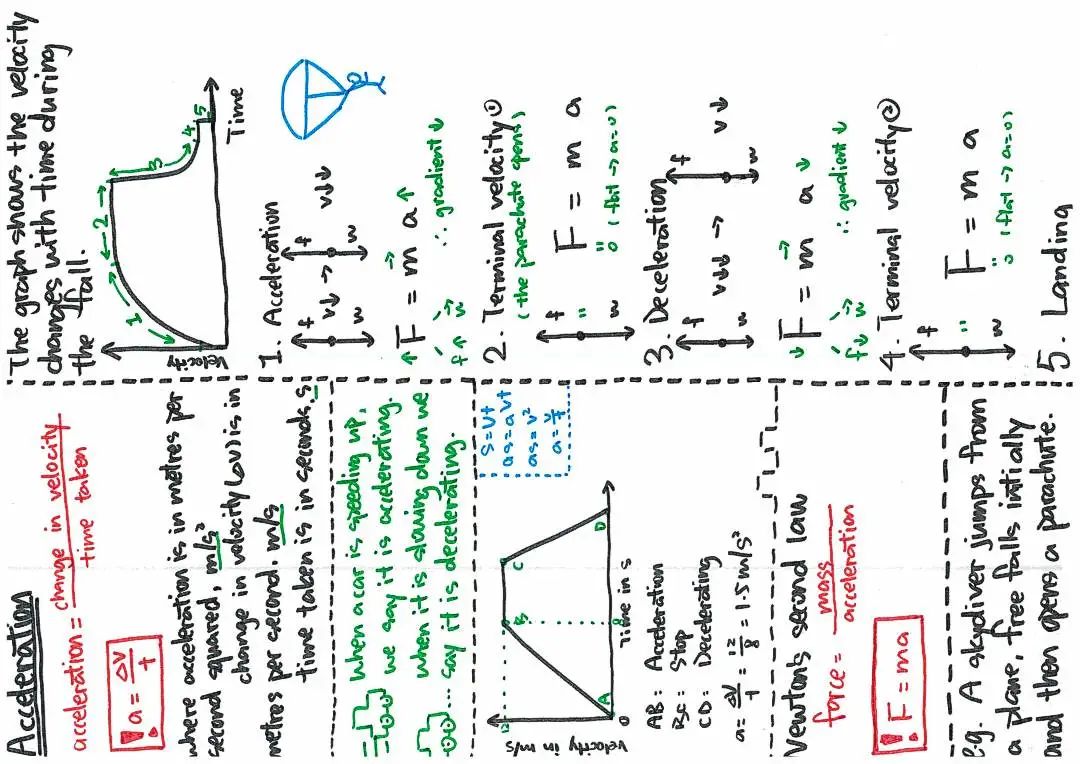 Acceleration
acceleration = change in velocity
time taken
! a = ΔV
t
where acceleration is in metres per
second squared, m/s²
change in velocity (ΔV) is in
metres per second. m/s
time taken is in seconds, s
when a car is speeding up,
we say it is accelerating.
when it is slowing down we
... say it is decelerating.
velocity in m/s
12
A
B
C
D
0
8
Time in s
S = Vt
as = aVt
as = v²
a = v
t
AB : Acceleration
BC : Stop
CD : Decelerating
a = ΔV/t = 12/8 = 1.5 m/s²
Newton's second law
force = mass
acceleration
! F = ma
e.g. A skydiver jumps from
a plane, free falls intially
and then opens a parachute.
The graph shows the velocity
changes with time during
the fall.
Velocity
1
2
3
4
5
Time
1. Acceleration
f
w
v↓ →
f
w
v↓↓
↑ F = m a ↑
f↑ w→
∴ gradient ↓
2. Terminal velocity ①
(the parachute opens)
f
=
w
F = m a
0 (flat → a=0)
3. Deceleration
f
w
v↓↓ →
f
w
v↓
↓ F = m a ↓
f↓ w→
∴ gradient ↓
4. Terminal velocity ②
f
=
w
F = m a
0 (flat → a=0)
5. Landing